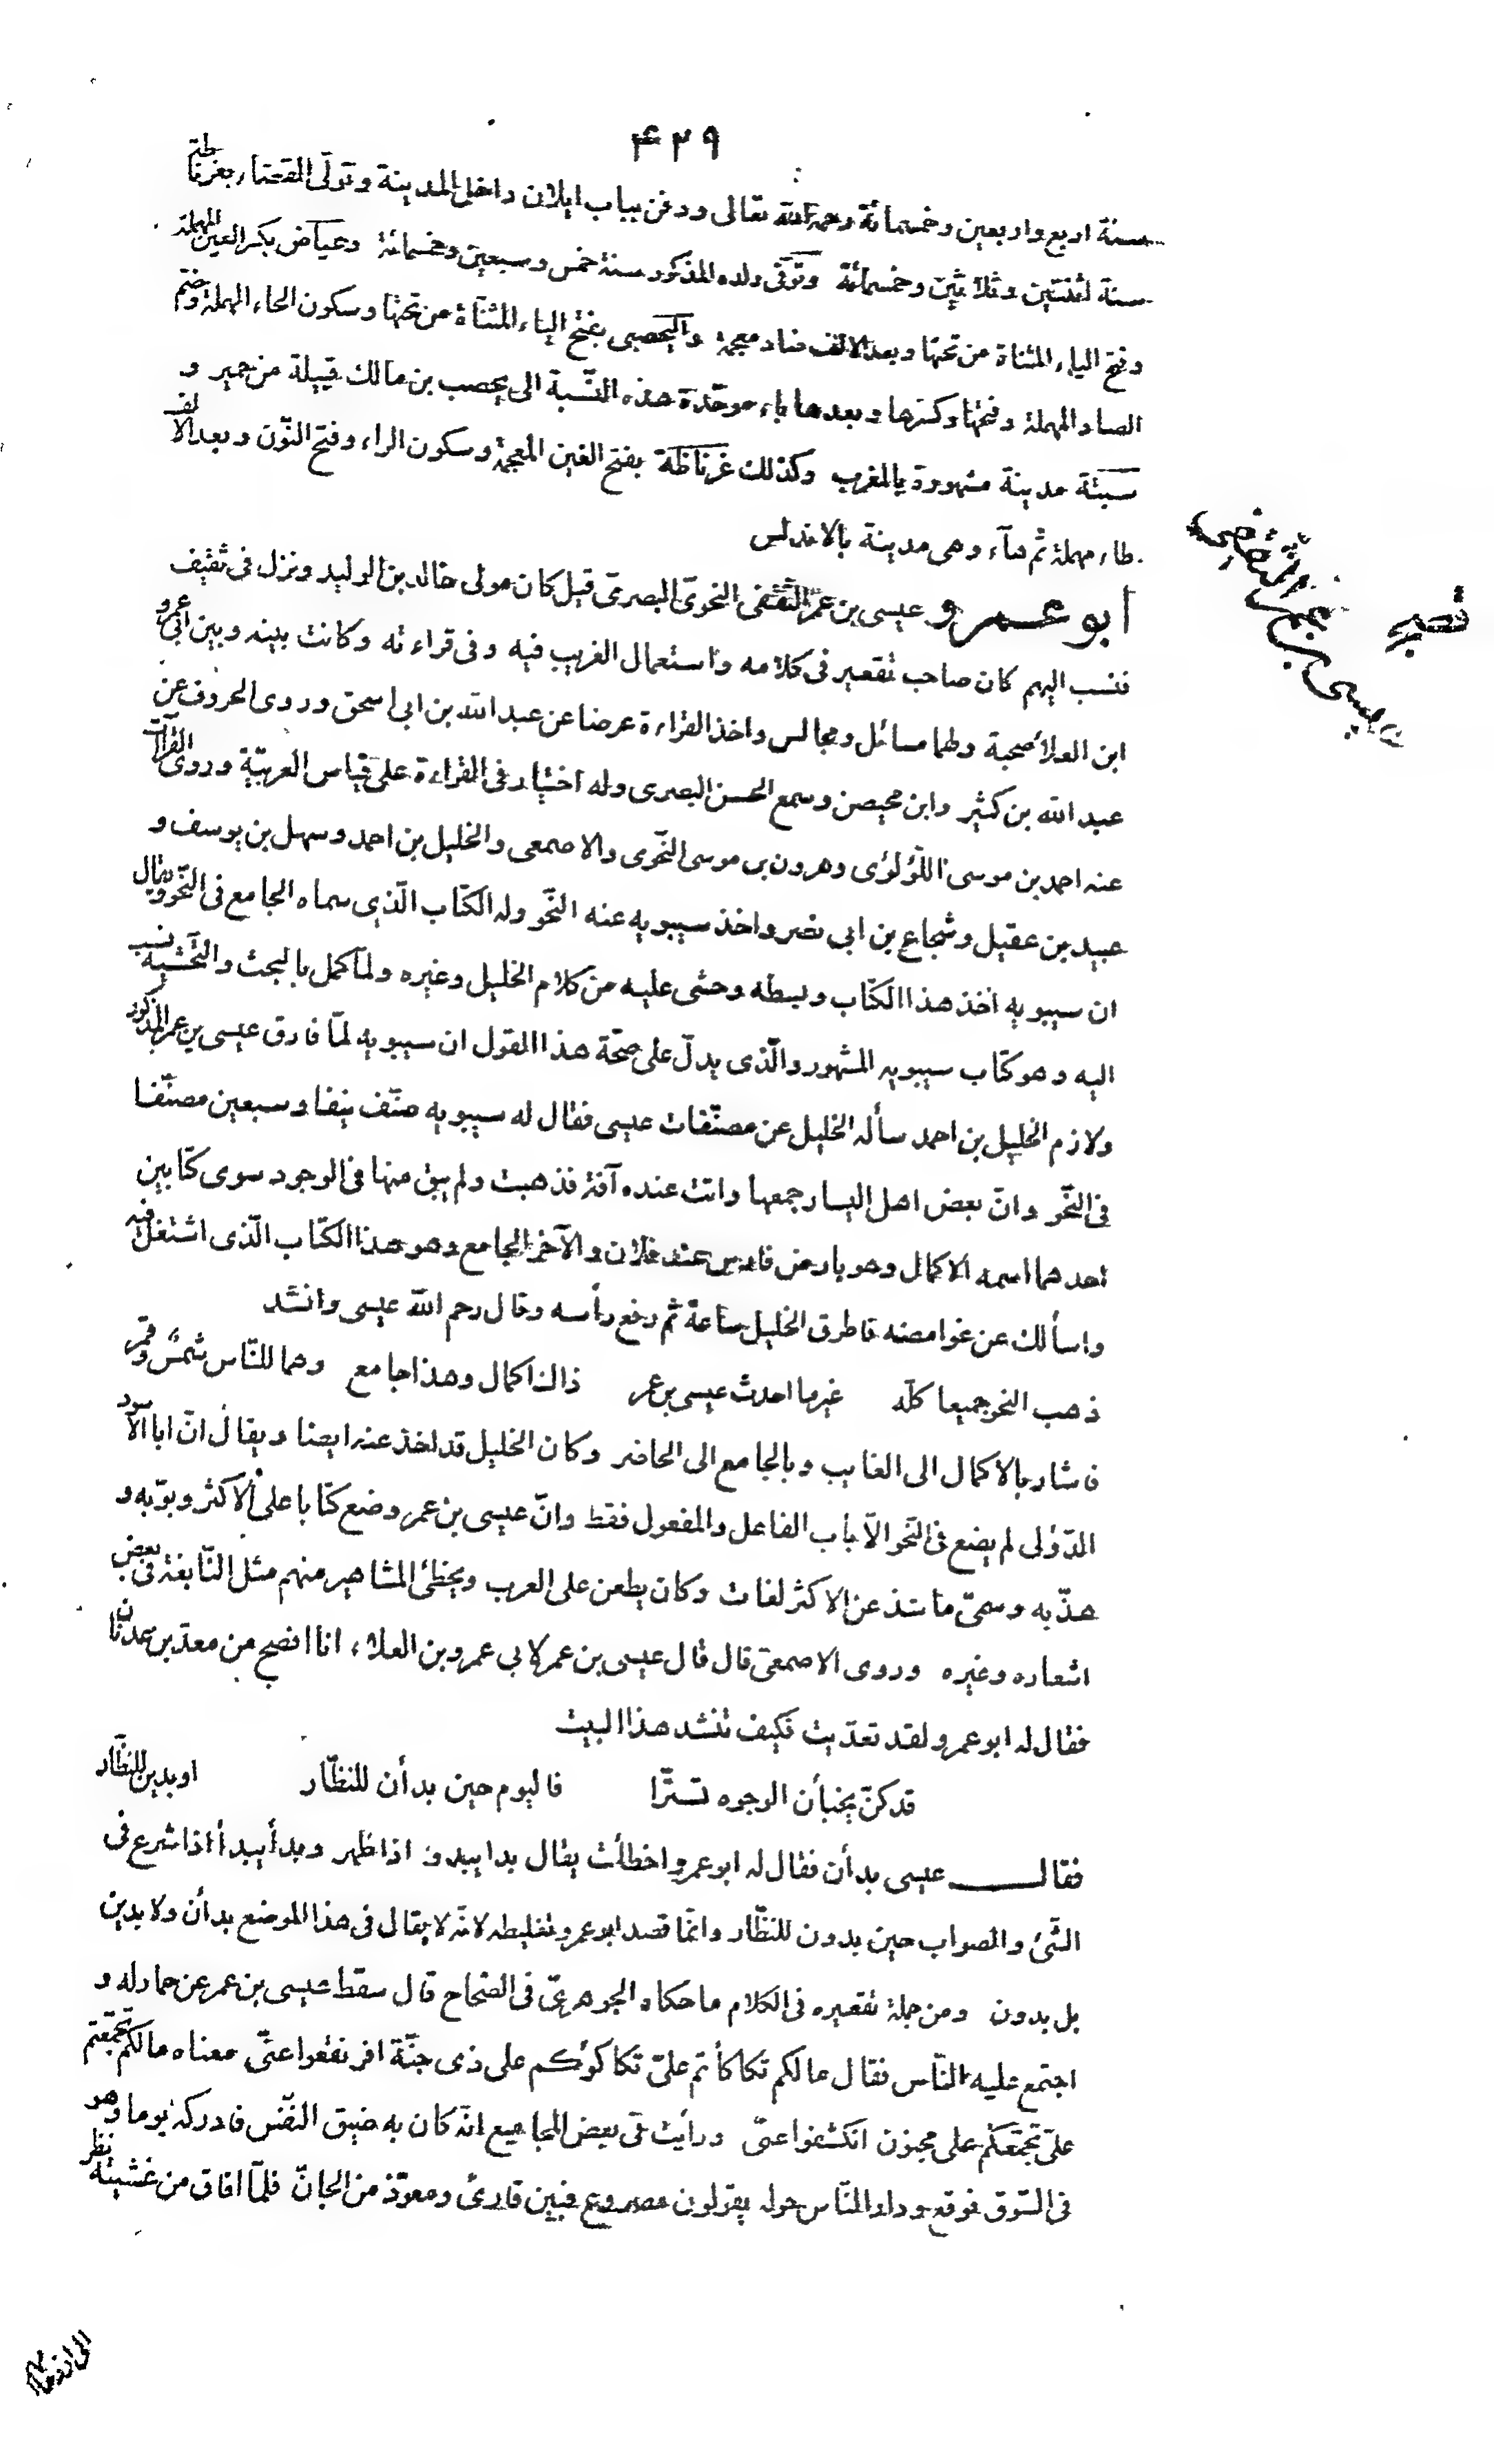 ۴۲۹
سنة اربع واربعين وخمسمائة رحمه الله تعالى ودفن بباب ايلان داخل المدينة وتولّى القضاء بغرناطة
سنة اثنتين وثلاثين وخمسمائة وتوفّى ولده المذكور سنة خمس وسبعين وخمسمائة وعياض بكسر العين المهملة
وفتح الياء المثناة من تحتها وبعد الالف ضاد معجمة واليحصبى بفتح الياء المثنّاة من تحتها وسكون الحاء المهملة وضمّ
الصاد المهملة وفتحها وكسرها وبعدها باء موحّدة هذه النّسبة الى يحصب بن مالك قبيلة من حمير و
سبتة مدينة مشهورة بالمغرب وكذلك غرناطة بفتح الغين المعجمة وسكون الراء وفتح النّون وبعد الالف
طاء مهملة ثم هاء وهى مدينة بالاندلس
ابو عمرو عيسى بن عمر الثّقفى النحوىّ البصرىّ قيل كان مولى خالد بن الوليد ونزل فى ثقيف
فنسب اليهم كان صاحب تقعير فى كلامه واستعمال الغريب فيه وفى قراءته وكانت بينه وبين ابى عمرو
ابن العلاء صحبة ولهما مسائل ومجالس واخذ القراءة عرضا عن عبد الله بن ابى اسحق وروى الحروف عن
عبد الله بن كثير وابن محيصن وسمع الحسن البصرى وله اختيار فى القراءة على قياس العربيّة وروى القراآت
عنه احمد بن موسى اللّؤلؤى وهرون بن موسى النّحوى والاصمعى والخليل بن احمد وسهل بن يوسف و
عبيد بن عقيل وشجاع بن ابى نصر واخذ سيبويه عنه النّحو وله الكتاب الّذى سماه الجامع فى النّحو ويقال
ان سيبويه اخذ هذا الكتاب وبسطه وحشى عليه من كلام الخليل وغيره ولمّا كمل بالبحث والتّحشية نسب
اليه وهو كتاب سيبويه المشهور والّذى يدلّ على صحّة هذا القول ان سيبويه لمّا فارق عيسى بن عمر المذكور
ولازم الخليل بن احمد سأله الخليل عن مصنّفات عيسى فقال له سيبويه صنّف نيفا وسبعين مصنّفا
فى النّحو وانّ بعض اهل اليسار جمعها واتت عنده آفة فذهبت ولم يبق منها فى الوجود سوى كتابين
احدهما اسمه الاكمال وهو بارض فارس عند فلان والآخر الجامع وهو هذا الكتاب الّذى اشتغل فيه
واسألك عن غوامضه فاطرق الخليل ساعة ثم رفع رأسه وقال رحم الله عيسى وانشد
ذهب النحو جميعا كلّه غير ما احدث عيسى بن عمر ذاك اكمال وهذا جامع وهما للنّاس شمس وقمر
فاشار بالاكمال الى الغايب وبالجامع الى الحاضر وكان الخليل قد اخذ عنه ايضا ويقال انّ ابا الاسود
الدّؤلى لم يضع فى النّحو الّا باب الفاعل والمفعول فقط وانّ عيسى بن عمر وضع كتابا على الاكثر وبوّبه و
هذّبه وسمّى ما شذ عن الاكثر لغات وكان يطعن على العرب ويخطّئ المشاهير منهم مثل النّابغة فى بعض
اشعاره وغيره وروى الاصمعىّ قال قال عيسى بن عمر لابى عمرو بن العلاء انا افصح من معدّ بن عدنان
فقال له ابو عمرو لقد تعدّيت فكيف تنشد هذا البيت
قد كنّ يخبأن الوجوه تستّرا فاليوم حين بدأن للنظّار او بدين للنظّار
فقال عيسى بدأن فقال له ابو عمرو اخطأت يقال بدا يبدو اذا ظهر وبدأ يبدأ اذا شرع فى
الشّئ والصواب حين بدون للنظّار وانّما قصد ابو عمرو تغليطه لانّه لا يقال فى هذا الموضع بدأن ولا بدين
بل بدون ومن جملة تقعيره فى الكلام ما حكاه الجوهرىّ فى الصّحاح قال سقط عيسى بن عمر عن حمار له و
اجتمع عليه النّاس فقال مالكم تكاكأتم علىّ تكاكؤكم على ذى جنّة افرنقعوا عنّى معناه مالكم تجمّعتم
علىّ تجمّعكم على مجنون انكشفوا عنّى ورأيت فى بعض المجاميع انّه كان به ضيق النّفس فادركه يوما وهو
فى السّوق فوقع ودار النّاس حوله يقولون مصروع فبين قارئ ومعوّذ من الجانّ فلمّا افاق من غشيته نظر
قصير
عيسى بن عمر الثقفى
الى ازدحام